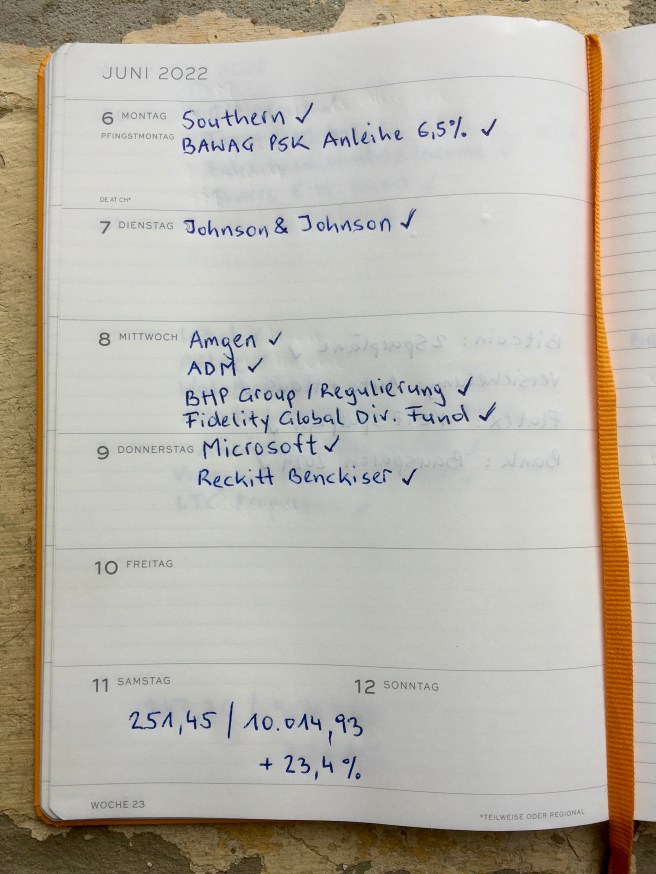 JUNI 2022
6 MONTAG Southern ✓
PFINGSTMONTAG BAWAG PSK Anleihe 6,5% ✓
DE AT CH*
7 DIENSTAG Johnson & Johnson ✓
8 MITTWOCH Amgen ✓
ADM ✓
BHP Group / Regulierung ✓
Fidelity Global Div. Fund ✓
9 DONNERSTAG Microsoft ✓
Reckitt Benckiser ✓
10 FREITAG
11 SAMSTAG 12 SONNTAG
251,45 / 10.014,93
+ 23,4%
WOCHE 23 *TEILWEISE ODER REGIONAL